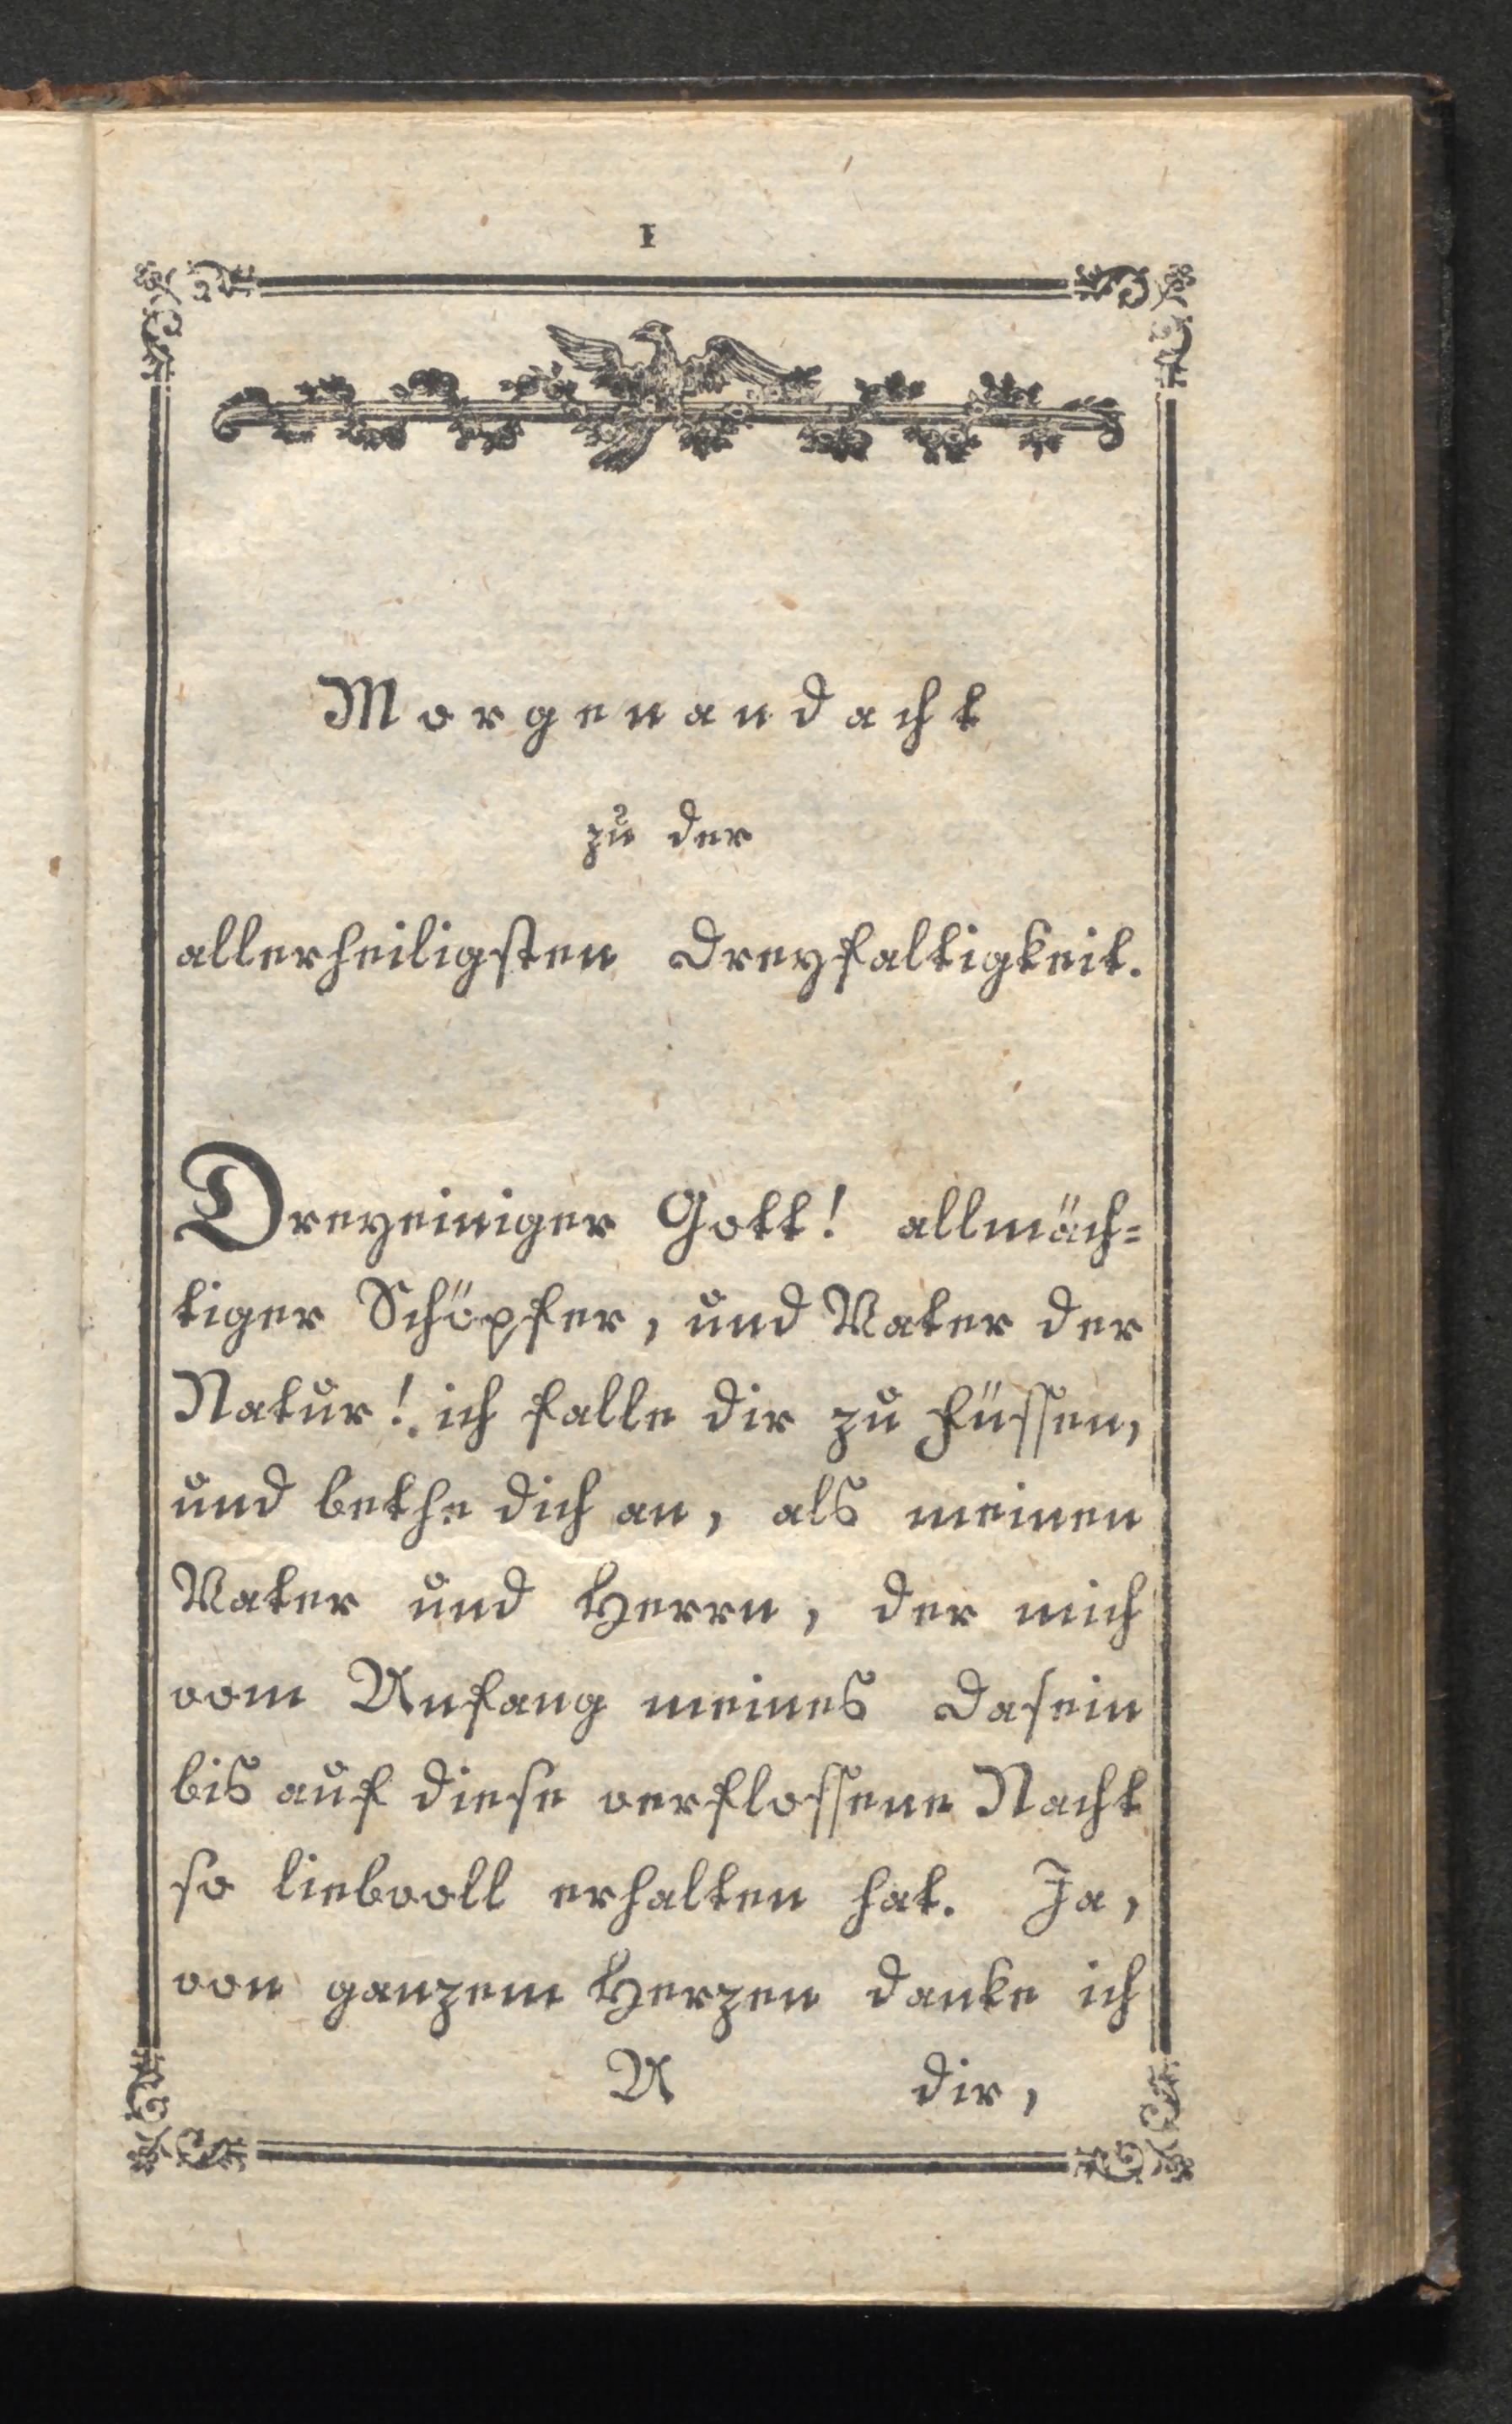 1
Morgenandacht
zu der
allerheiligsten Dreyfaltigkeit.
Dreyeiniger Gott! allmäch=
tiger Schöpfer, und Vater der
Natur! ich falle dir zu Füssen,
und bethe dich an, als meinen
Vater und Herrn, der mich
vom Anfang meines Dasein
bis auf diese verflossene Nacht
so liebvoll erhalten hat. Ja,
von ganzem Herzen danke ich
A dir,